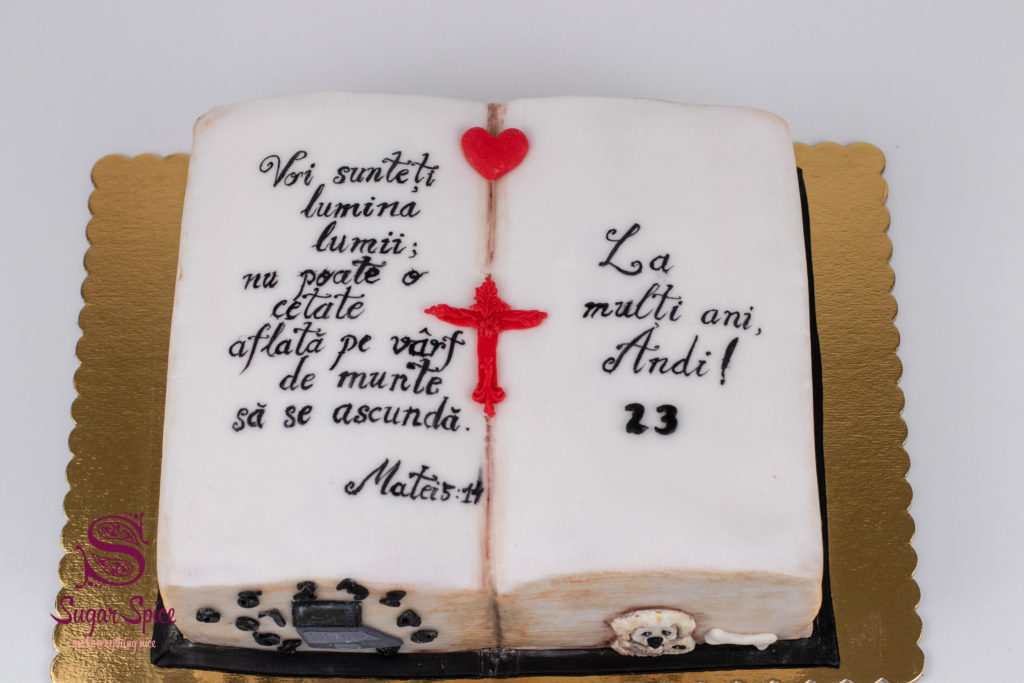 Voi sunteți
lumina
lumii;
nu poate o
cetate
aflată pe vârf
de munte
să se ascundă.
Matei 5:14
La
mulți ani,
Andi!
23
S
Sugar Spice
make everything nice